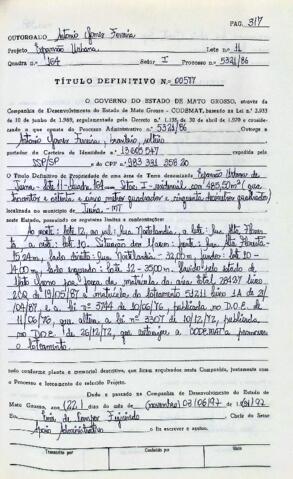 PAG. 317
OUTORGADO Antonio Gomes Ferreira
Projeto Expansão Urbana Lote n.º 11
Quadra n.º 164 Setor I Processo n.º 5321/86
TÍTULO DEFINITIVO N.º 00577
O GOVERNO DO ESTADO DE MATO GROSSO, através da
Companhia de Desenvolvimento do Estado de Mato Grosso - CODEMAT, baseado na Lei n.º
10 de junho de 1980, regulamentada pelo Decreto n.º 1.138, de 30 de abril de 1970 e conside-
rando o que consta do Processo Administrativo n.º 5321/86 Outorga a
Antonio Gomes Ferreira, brasileiro, solteiro
portador da Carteira de Identidade n.º 13.605.547 expedida pela
SSP/SP e do CPF n.º 983 391 258 20
O Título Definitivo de Propriedade de uma área de Terra denominada Expansão Urbana de
Juina - lote 11 - quadra 164 - Setor I - residencial com 485,50m² (quatrocentos e oitenta e cinco metros quadrados e cinquenta decímetros quadrados)
localizada no município de Juina - MT
neste Estado, possuindo os seguintes limites e confrontações:
Ao norte: lote 12, ao sul: rua Natelandia, a leste: rua Alta Floresta
a oeste: lote 10.
15,24m, lado direito: rua Natelandia - 32,00m, fundo: lote 10 -
14,00m, lado esquerdo: lote 12 - 35,00m.
Mato Grosso por força da matrícula da área total 28437 livro
2CQ de 19/05/87 e matrícula do loteamento 53211 livro 1A de 21/
04/87 e a lei nº 3744 de 10/06/76, publicada no D.O.E. de
11/06/76, que altera a lei nº 3307 de 10/12/72, publicada
no D.O.E. de 26/12/72, que autoriza a CODEMAT a promover
o loteamento.
tudo conforme planta e memorial descritivo, que foram arquivados nesta Companhia, juntamente com
o Processo e loteamento do referido Projeto.
Dado e passado na Companhia de Desenvolvimento do Estado de
Mato Grosso, aos (22) dias do mês de (novembro) 03/06/97
Eu, Figueiredo Chefe do Setor
Apoio Administrativo o fiz escrever e assino.
Transcrito por Conferido por Visto